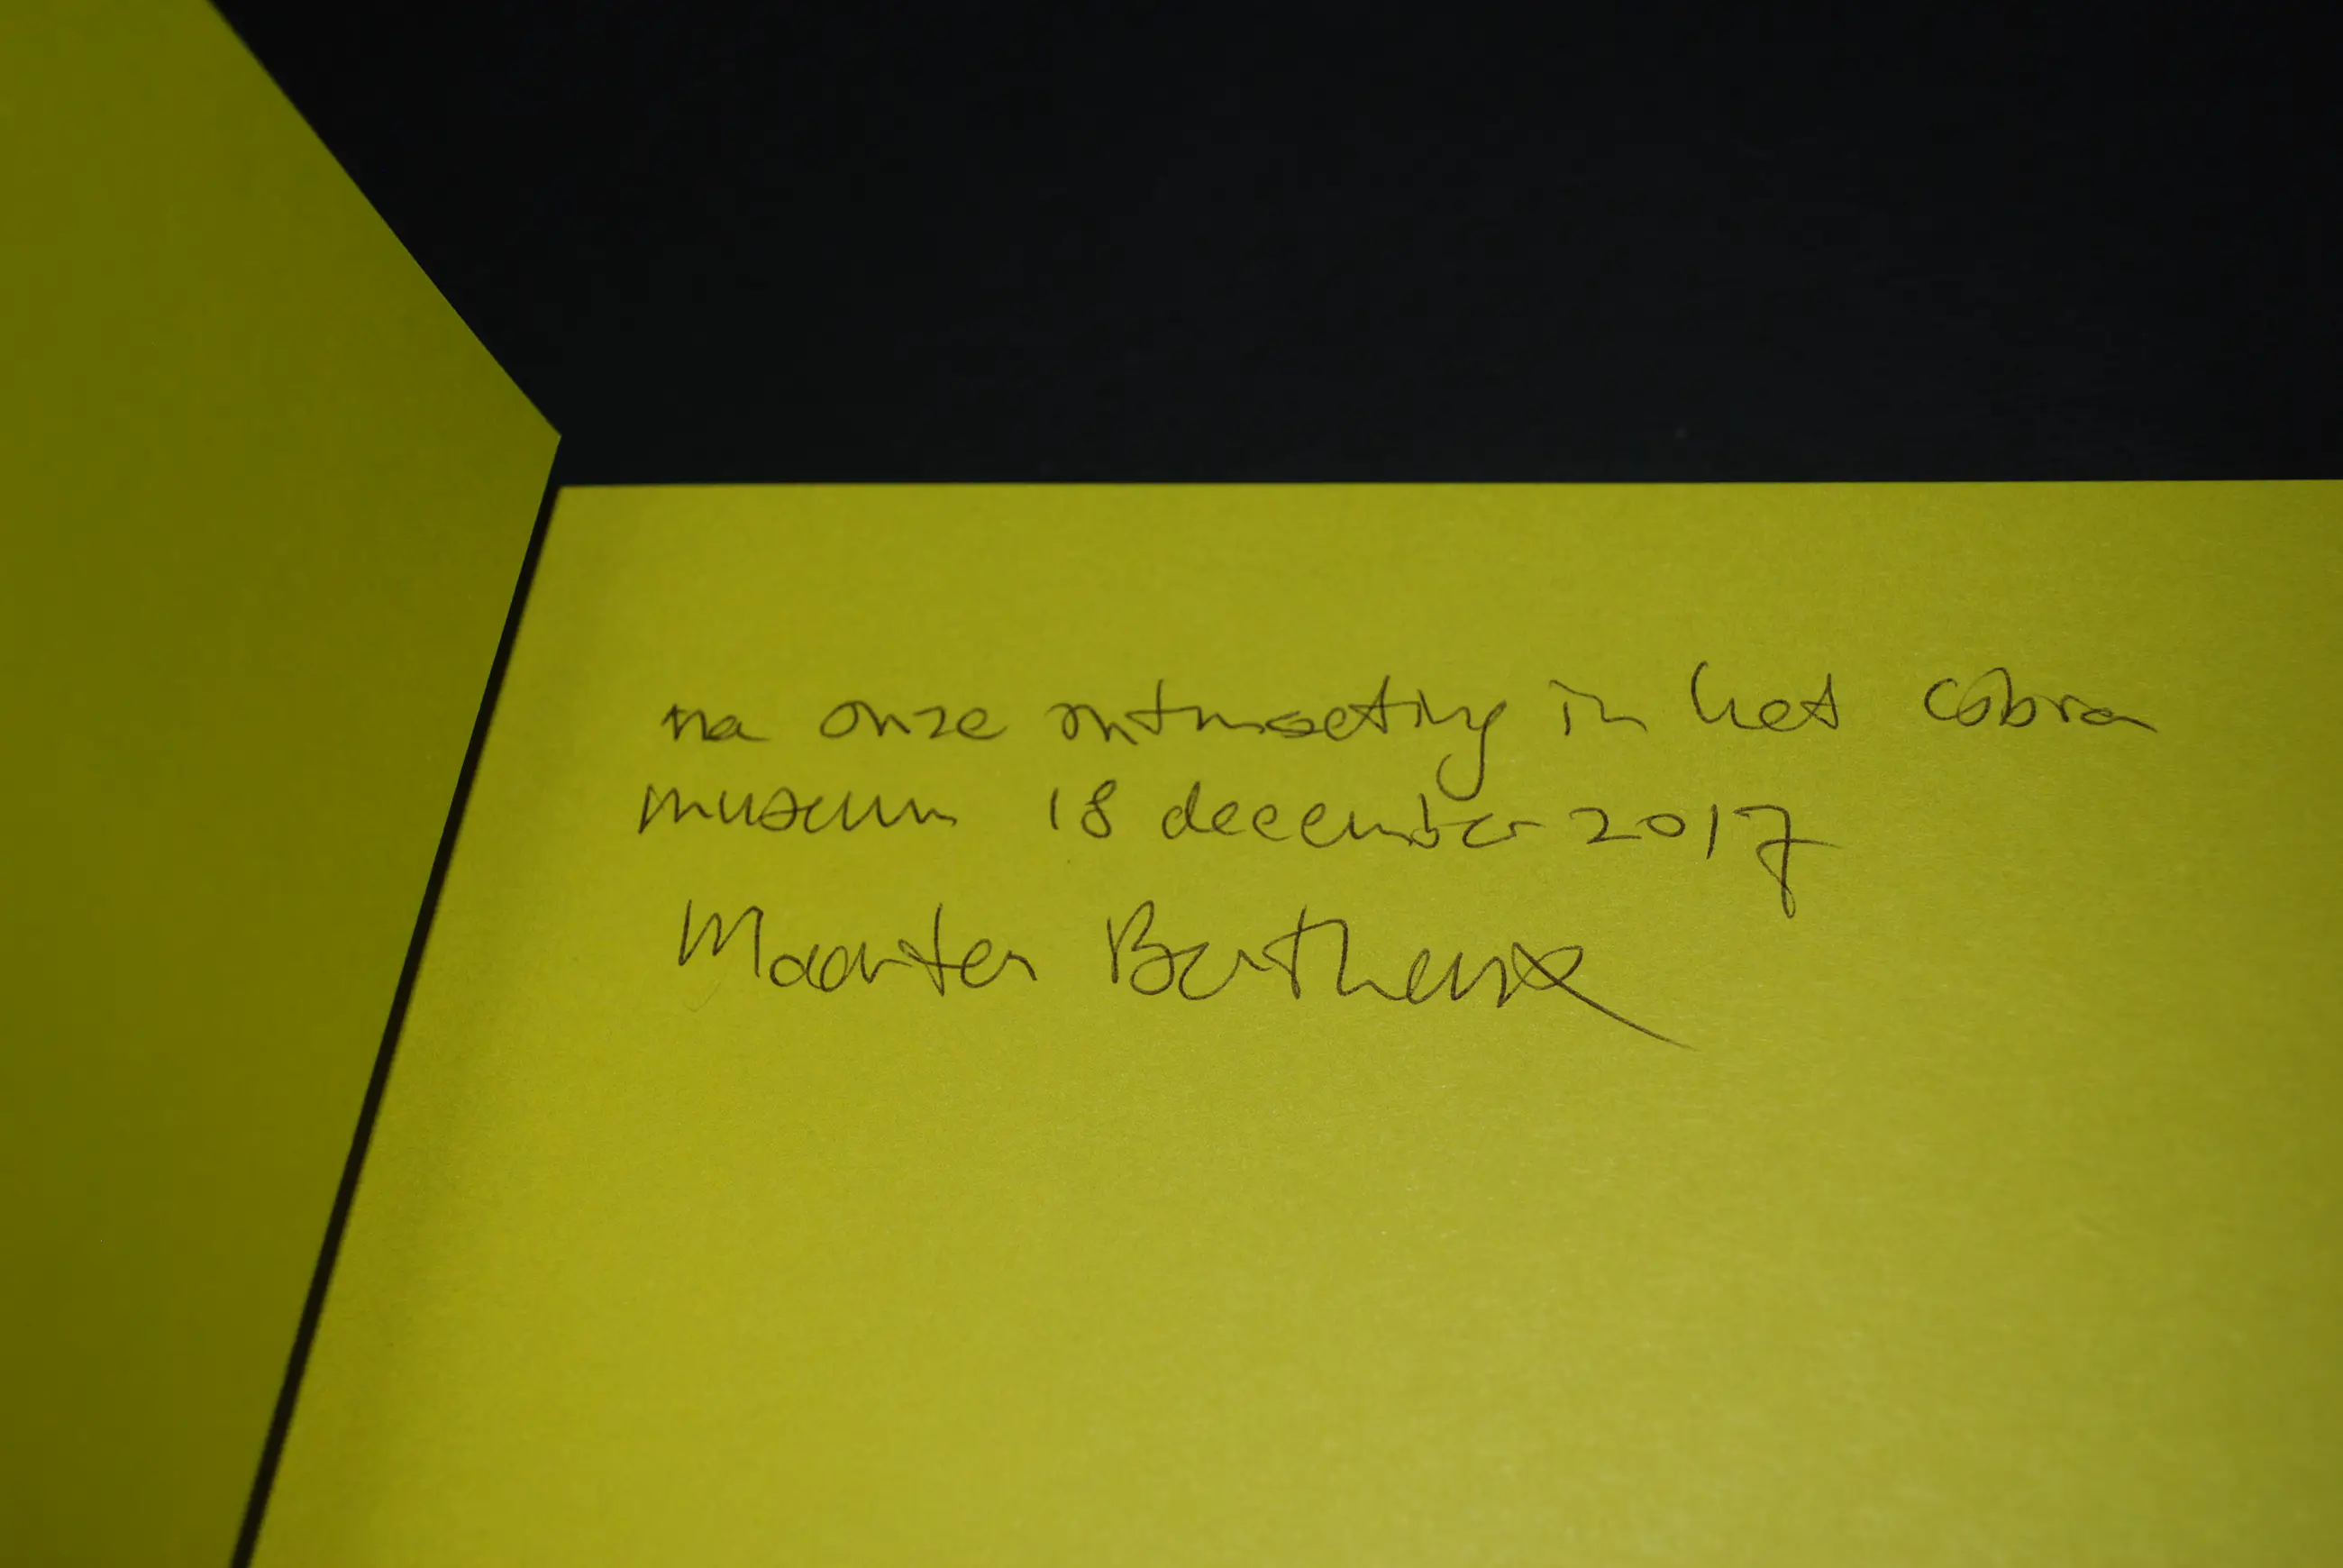 na onze ontmoeting in het cobra
museum 18 december 2017
Maarten Bertheux